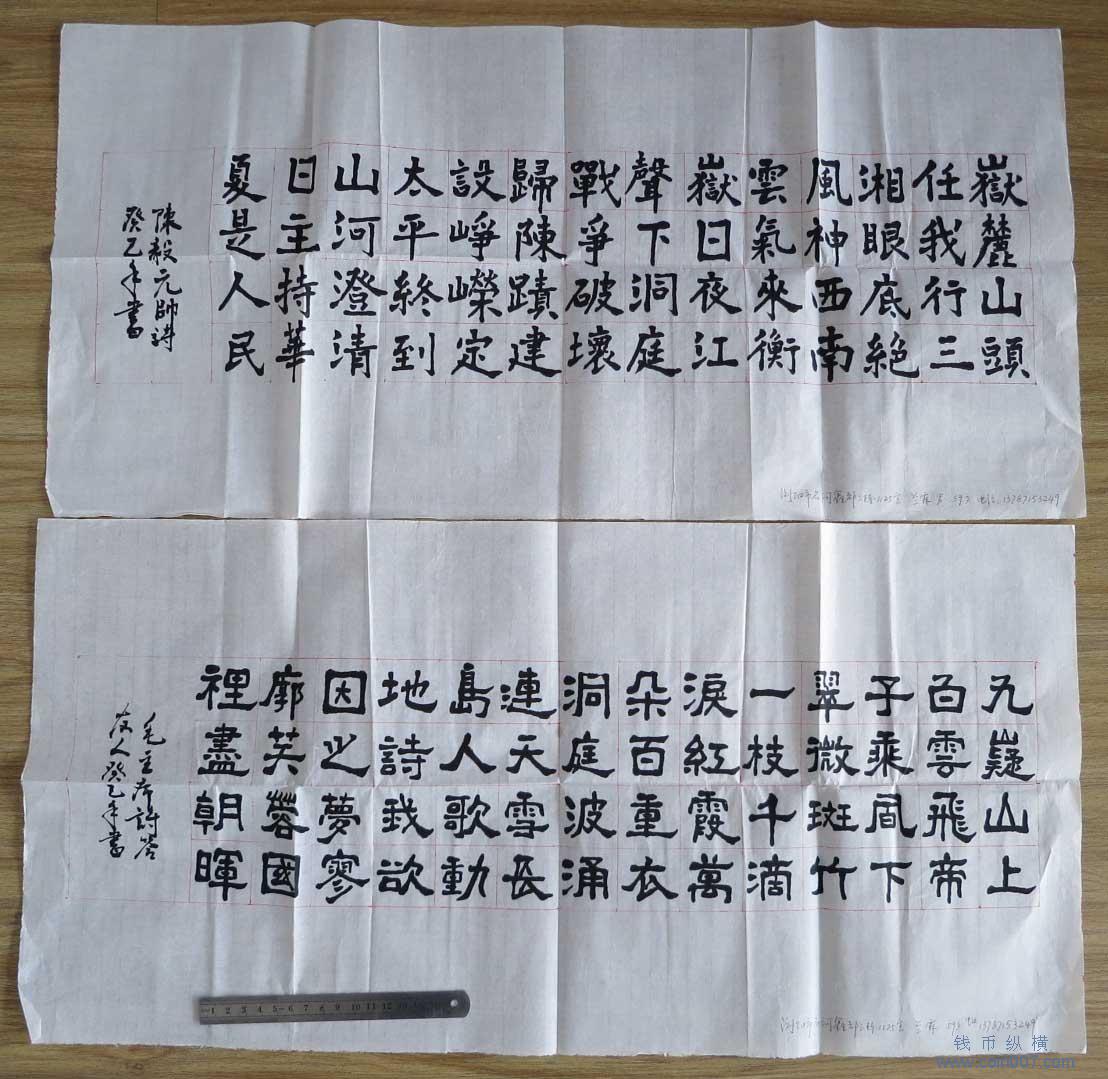 嶽麓山頭
任我行三
湘眼底絕
風神西南
雲氣來衡
嶽日夜江
聲下洞庭
戰爭破壞
歸陳蹟建
設崢嶸定
太平終到
山河澄清
日主持華
夏是人民
陳毅元帥詩
癸乙年書
九嶷山上
白雲飛帝
子乘風下
翠微斑竹
一枝千滴
淚紅霞萬
朵百重衣
洞庭波涌
連天雪長
島人歌動
地詩我欲
因之夢寥
廓芙蓉國
裡盡朝暉
毛主席詩答
友人癸乙年書
1 2 3 4 5 6 7 8 9 10 11 12
钱币纵横
www.coin007.com